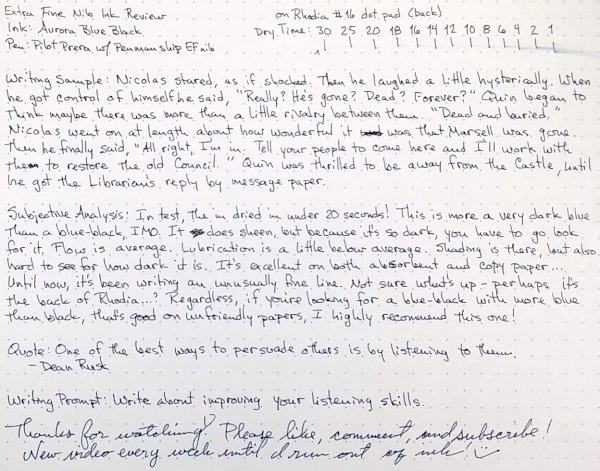 Extra Fine Nib Ink Review on Rhodia #16 dot pad (back)
Ink: Aurora Blue Black Dry Time: 30 25 20 18 16 14 12 10 8 6 4 2 1
Pen: Pilot Prera w/ Penmanship EF nib
Writing Sample: Nicolas stared, as if shocked. Then he laughed a little hysterically. When
he got control of himself he said, "Really? He's gone? Dead? Forever?" Quin began to
think maybe there was more than a little rivalry between them. "Dead and buried."
Nicolas went on at length about how wonderful it was that Marsell was gone.
Then he finally said, "All right, I'm in. Tell your people to come here and I'll work with
them to restore the old Council." Quin was thrilled to be away from the Castle, until
he got the Librarian's reply by message paper.
Subjective Analysis: In test, the in dried in under 20 seconds! This is more a very dark blue
than a blue-black, IMO. It does sheen, but because it's so dark, you have to go look
for it. Flow is average. Lubrication is a little below average. Shading is there, but also
hard to see for how dark it is. It's excellent on both absorbent and copy paper...
Until now, it's been writing an unusually fine line. Not sure what's up - perhaps it's
the back of Rhodia...? Regardless, if you're looking for a blue-black with more blue
than black, that's good on unfriendly papers, I highly recommend this one!
Quote: One of the best ways to persuade others is by listening to them.
- Dean Rusk
Writing Prompt: Write about improving your listening skills.
Thanks for watching! Please like, comment, and subscribe!
New video every week until I run out of ink! :)